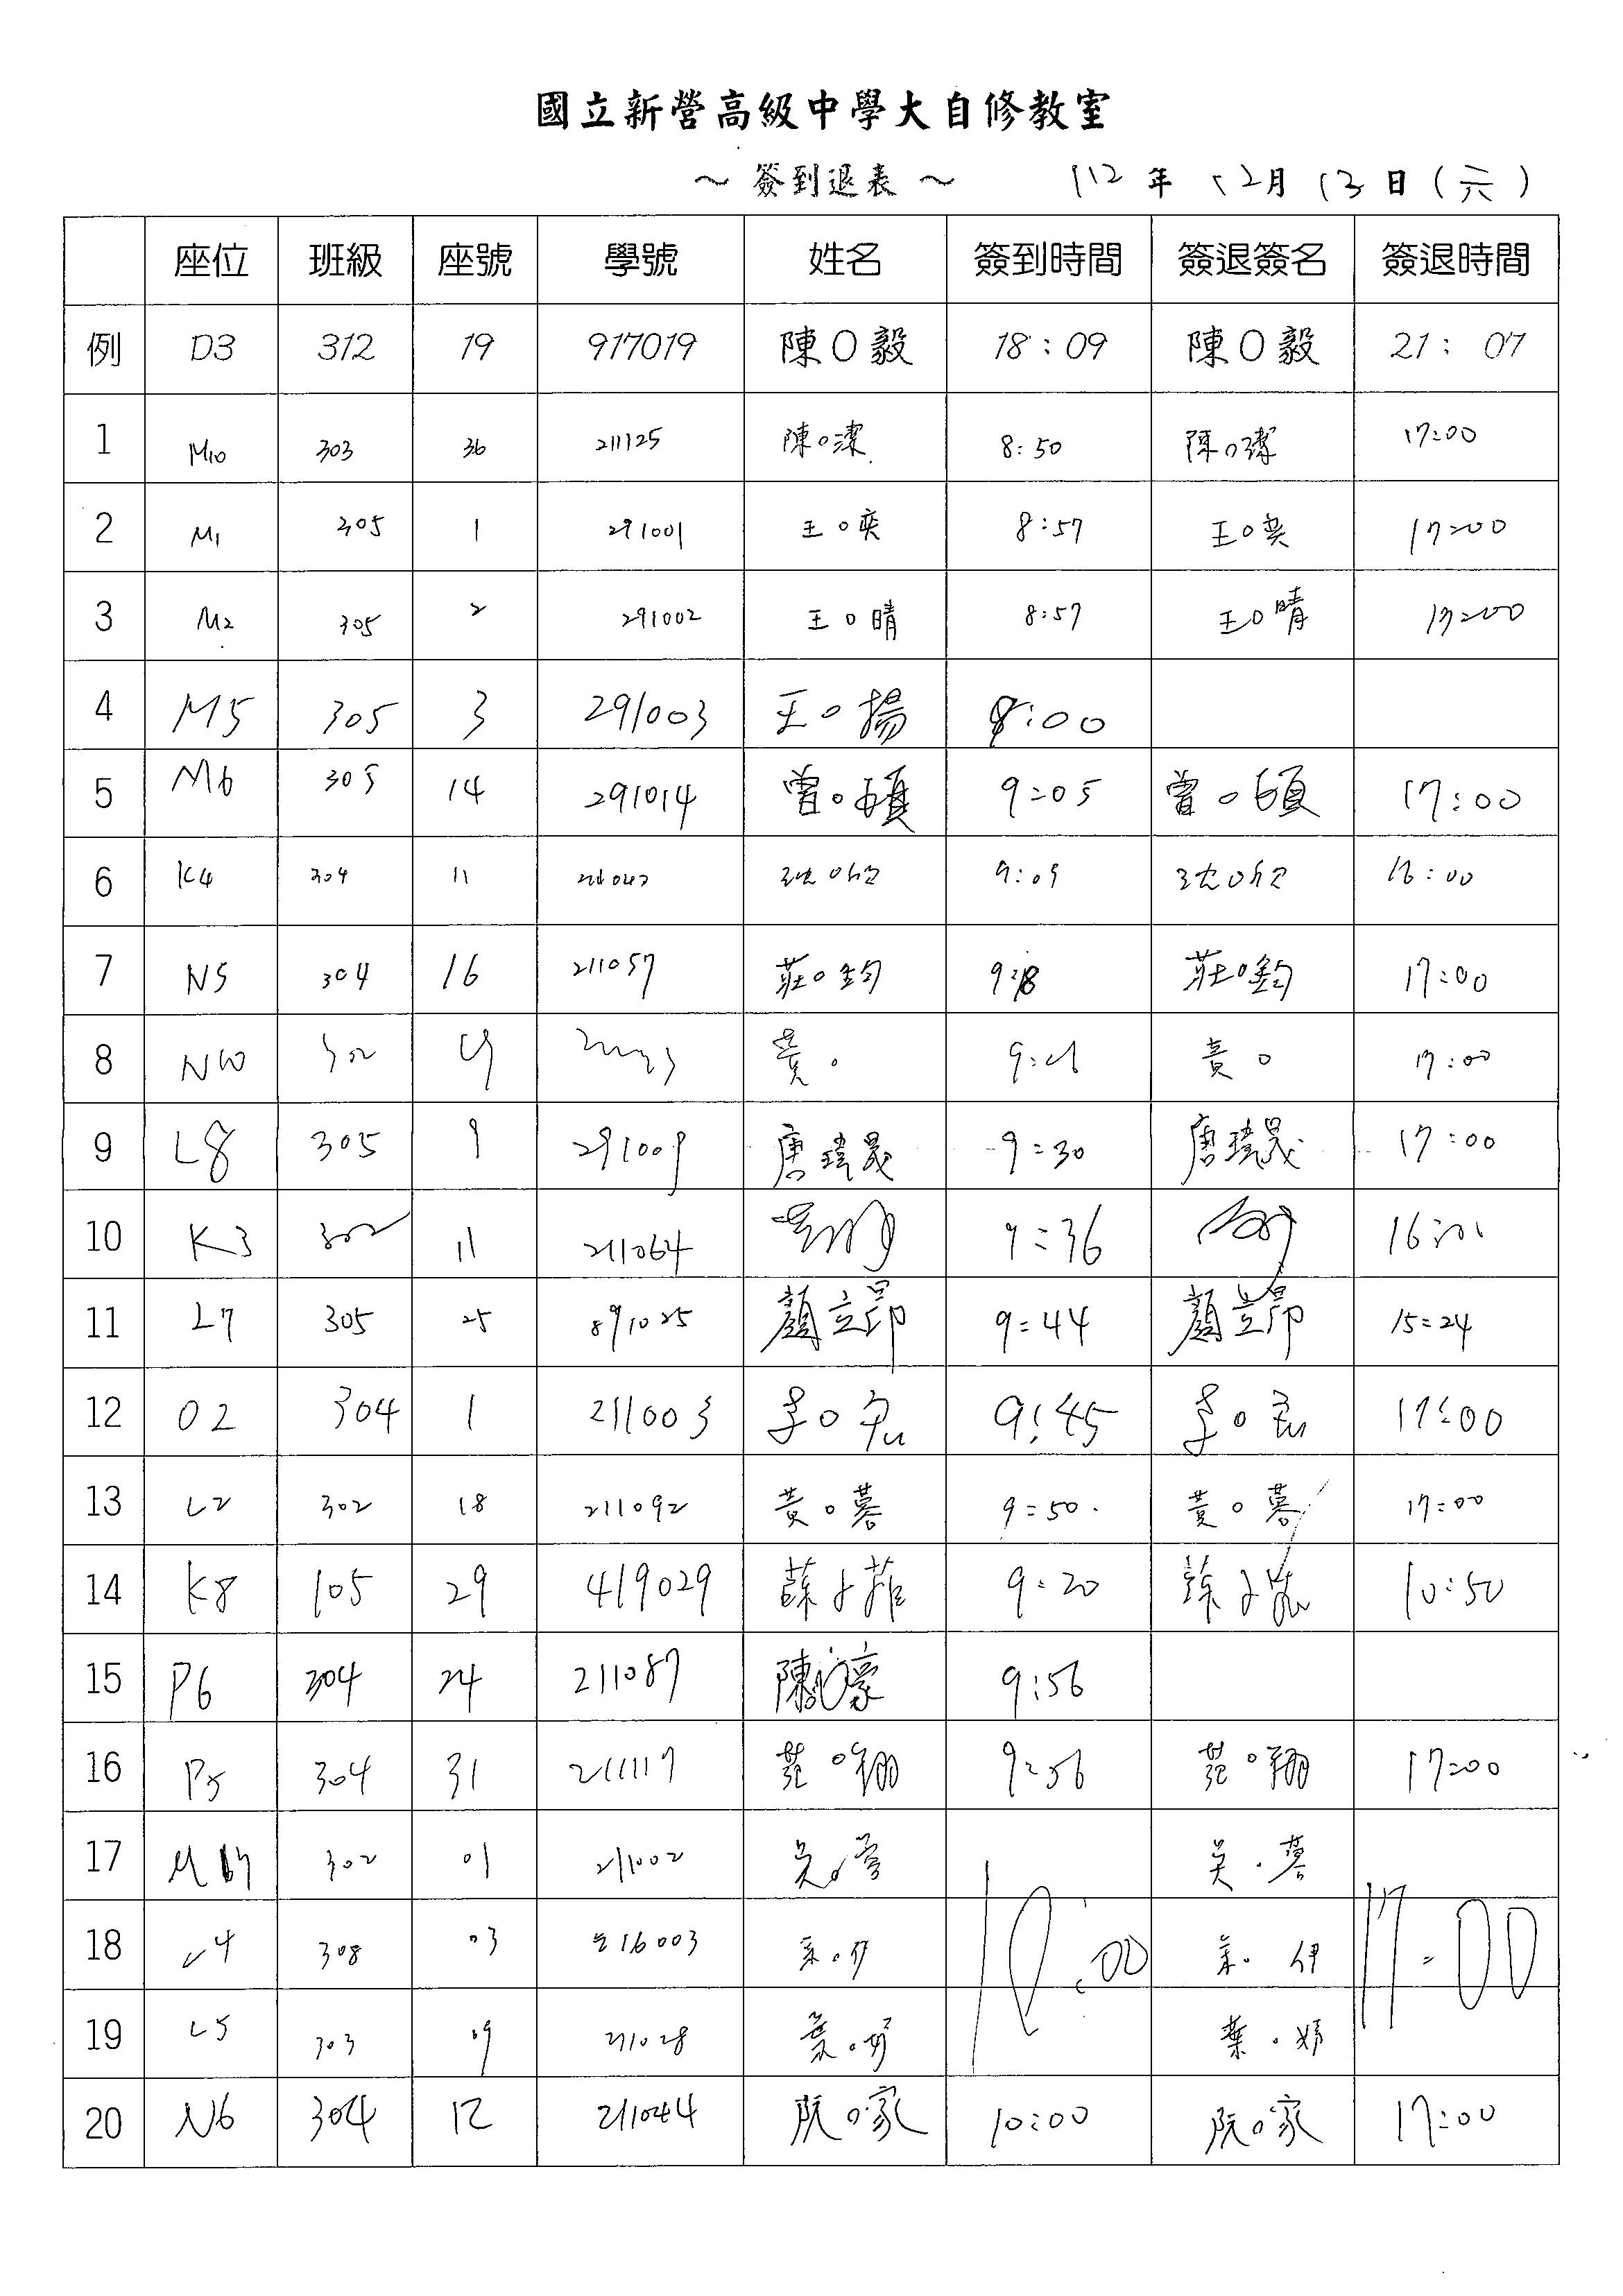 國立新營高級中學大自修教室
～簽到退表～ 112年12月13日(六)
座位 班級 座號 學號 姓名 簽到時間 簽退簽名 簽退時間
例 D3 312 19 917019 陳O毅 18:09 陳O毅 21:07
1 M10 303 36 211125 陳O潔 8:50 陳O潔 17:00
2 M1 305 1 291001 王O奕 8:57 王O奕 17:00
3 M2 305 2 291002 王O晴 8:57 王O晴 17:00
4 M5 305 3 291003 王O揚 :00
5 M6 305 14 291014 曾O碩 9:05 曾O碩 17:00
6 K4 304 11 沈O 9:09 沈O 16:00
7 N5 304 16 211057 莊O鈞 9:18 莊O鈞 17:00
8 N10 302 黃O 黃O 17:00
9 L8 305 9 291009 唐瑋晟 9:30 唐瑋晟 17:00
10 K3 302 11 211064 9:36
11 L7 305 25 891025 顏立昂 9:44 顏立昂 15:24
12 O2 304 1 211003 李O 9:45 李O 17:00
13 L2 302 18 211092 黃O蓉 9:50 黃O蓉 17:00
14 K8 105 29 419029 蘇 9:20 蘇 10:50
15 P6 304 24 211087 陳O豪 9:56
16 P5 304 31 211117 范O翔 9:56 范O翔 17:00
17 M 302 01 211002 吳O 吳O
18 L4 308 03 216003 10:00 17:00
19 L5 303 09 211028 葉O 葉O
20 N6 304 12 211044 阮O家 10:00 阮O家 17:00